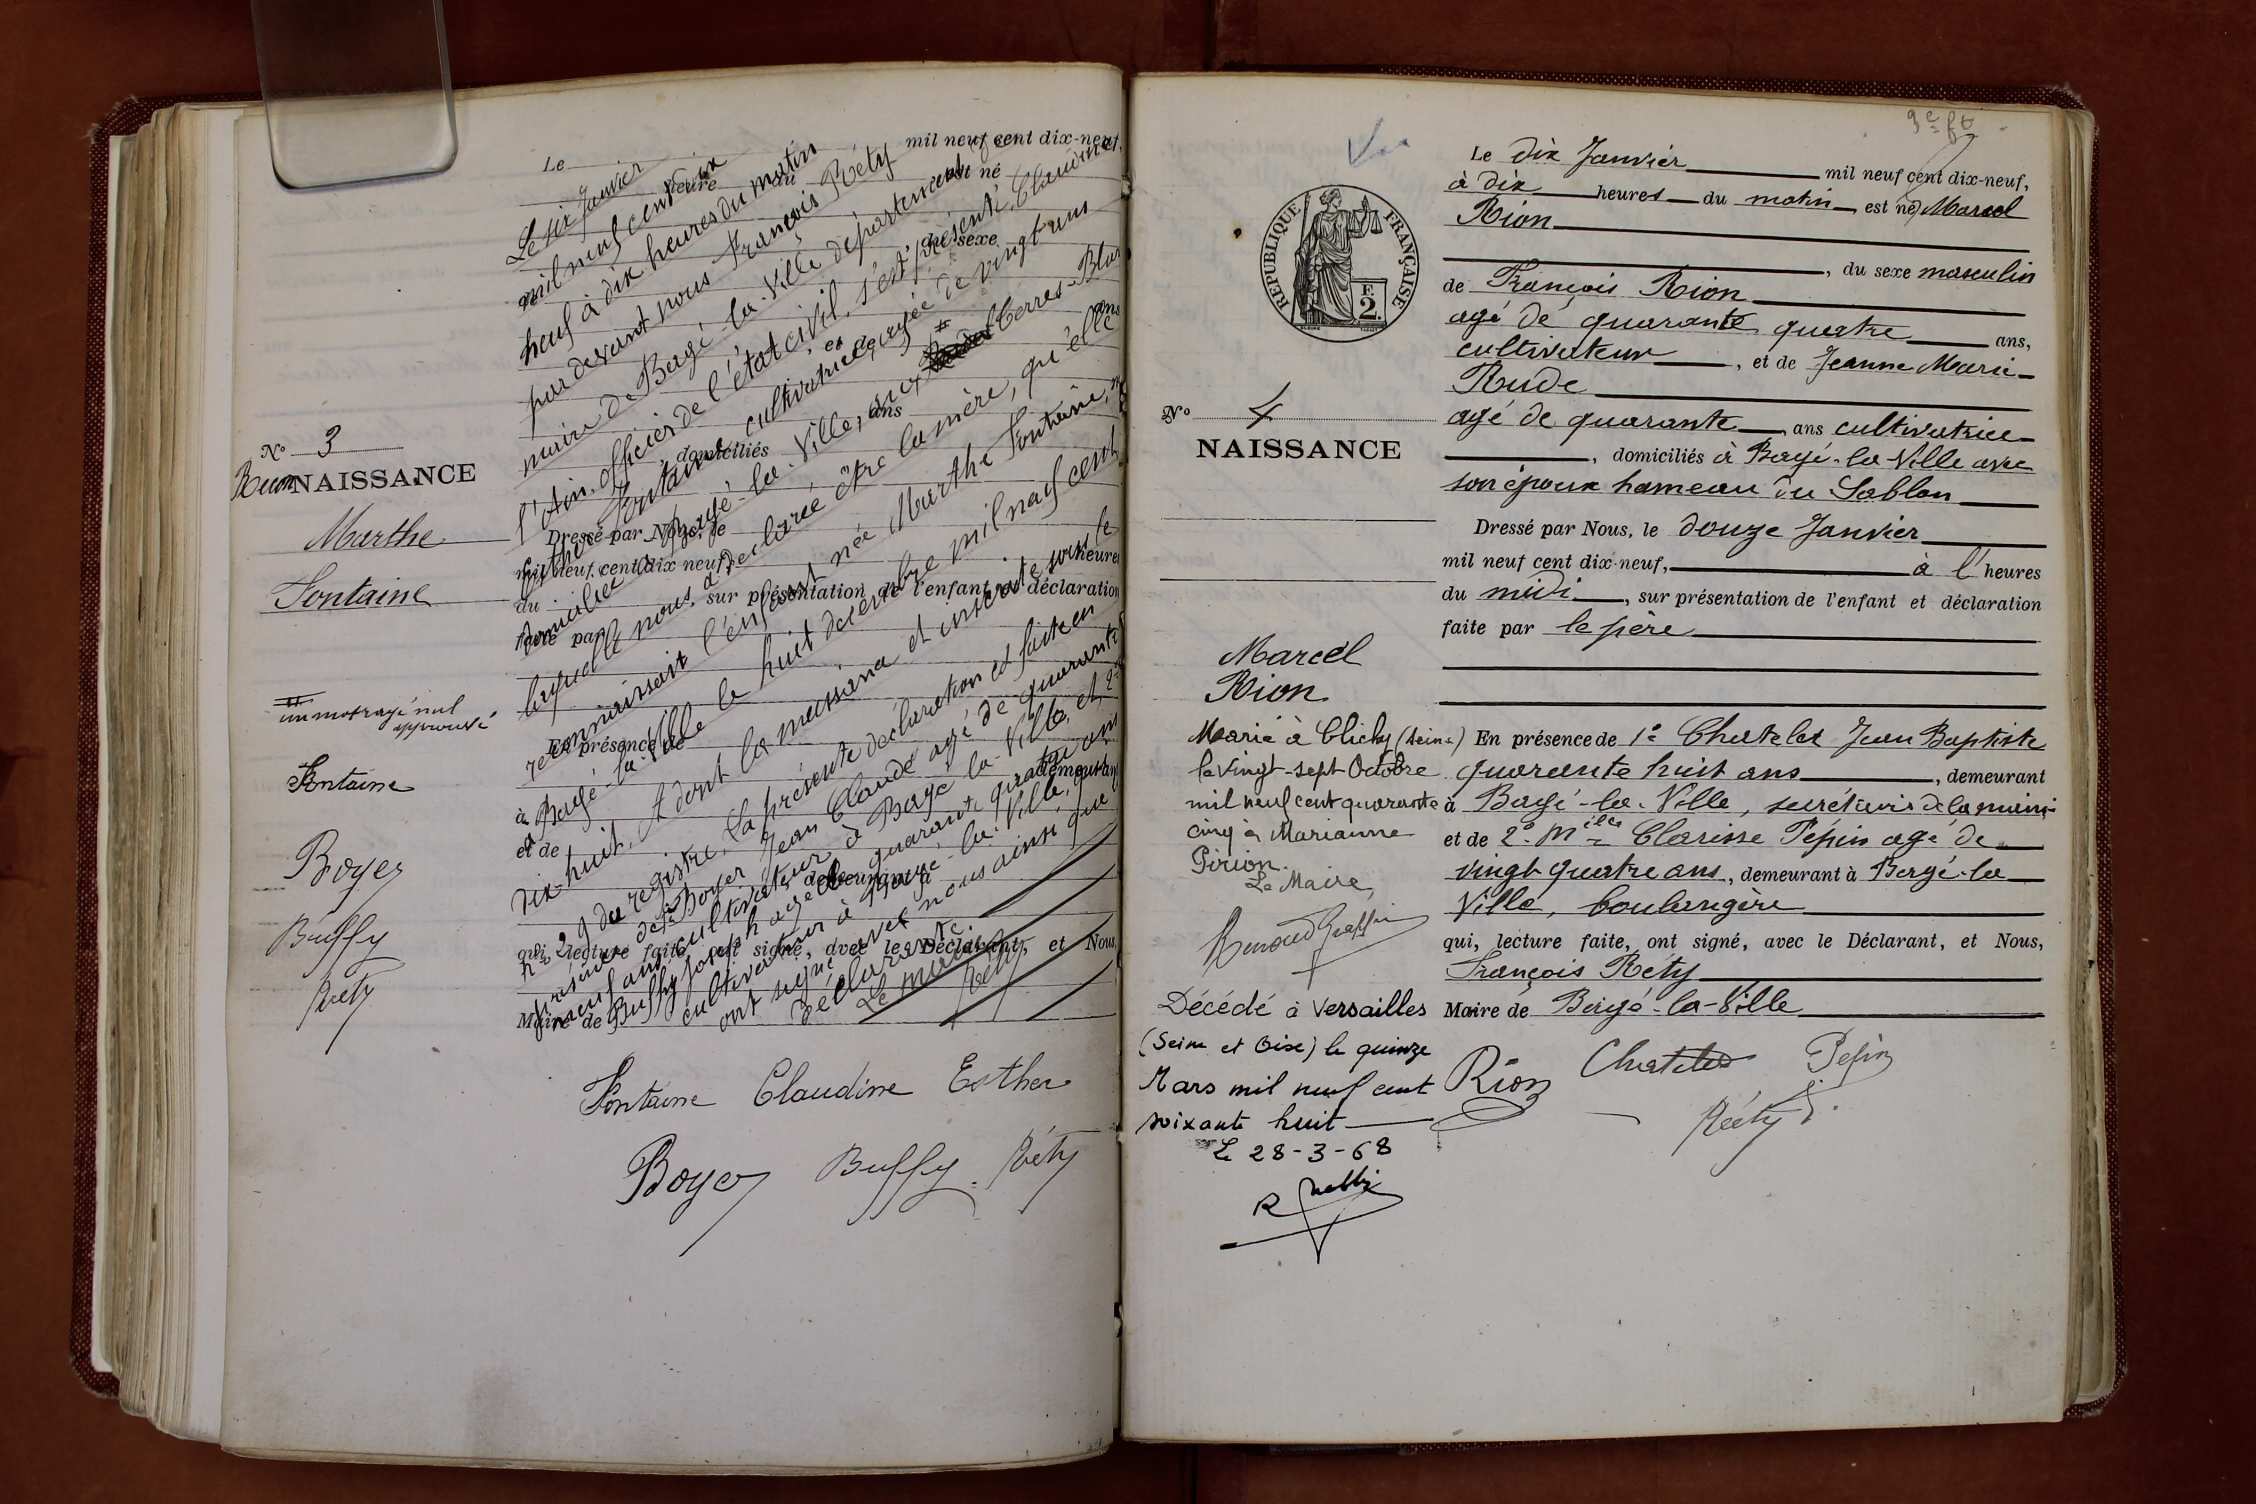 N° 3
NAISSANCE
Marthe
Fontaine
un mot rayé nul
approuvé
Fontaine
Boyer
Buffy
Réty
Le mil neuf cent dix-neuf,
heure du est né
Le six Janvier
mil neuf cent dix
neuf à dix heures du matin
par devant nous François Réty
maire de Bagé-la-Ville département
l'Ain, officier de l'état civil, s'est présenté Claudine
Esther Fontaine cultivatrice, agée de vingt ans
domiciliée à Bagé-la-Ville, aux Terres-
laquelle nous a déclarée être la mère, qu'elle
reconnaissait l'enfant née Marthe Fontaine,
à Bagé-la-Ville le huit décembre mil neuf cent
dix-huit, et dont la naissance est inscrite sous le
n° 29 du registre. La présente déclaration est faite en
présence de 1° Boyer Jean Claude agé de quarante
neuf ans, cultivateur à Bagé-la-Ville, et 2°
Buffy Joseph agé de quarante quatre ans
cultivateur à Bagé-la-Ville, qui
ont signé avec nous ainsi que
déclarante.
Le maire
Réty
du sexe
et de
ans
ans
domiciliés
Dressé par Nous, le
mil neuf cent dix neuf, à
heures
du , sur présentation de l'enfant et déclaration
faite par
En présence de
demeurant
à
et de
demeurant à
qui, lecture faite, ont signé, avec le Déclarant, et Nous,
Maire de
Fontaine Claudine Esther
Boyer Buffy Réty
RÉPUBLIQUE FRANÇAISE
F.
2.
N° 4
NAISSANCE
Marcel
Rion
Marié à Clichy (Seine)
le vingt-sept Octobre
mil neuf cent quarante
cinq à Marianne
Pirion.
Le Maire,
Décédé à Versailles
(Seine et Oise) le quinze
Mars mil neuf cent
soixante huit
Le 28-3-68
Le dix Janvier mil neuf cent dix-neuf,
à dix heures du matin, est né Marcel
Rion
, du sexe masculin
de François Rion
agé de quarante quatre ans,
cultivateur, et de Jeanne Marie
Rude
agé de quarante ans cultivatrice
, domiciliés à Bagé-la-Ville avec
son époux hameau du Sablon
Dressé par Nous, le douze Janvier
mil neuf cent dix-neuf, à l' heures
du midi, sur présentation de l'enfant et déclaration
faite par le père
En présence de 1° Chatelet Jean Baptiste
quarante huit ans, demeurant
à Bagé-la-Ville, secrétaire de la mairie
et de 2° Melle Clarisse Pépin agé de
vingt quatre ans, demeurant à Bagé-la
Ville, boulangère
qui, lecture faite, ont signé, avec le Déclarant, et Nous,
François Réty
Maire de Bagé-la-Ville
Rion Chatelet Pépin
Réty